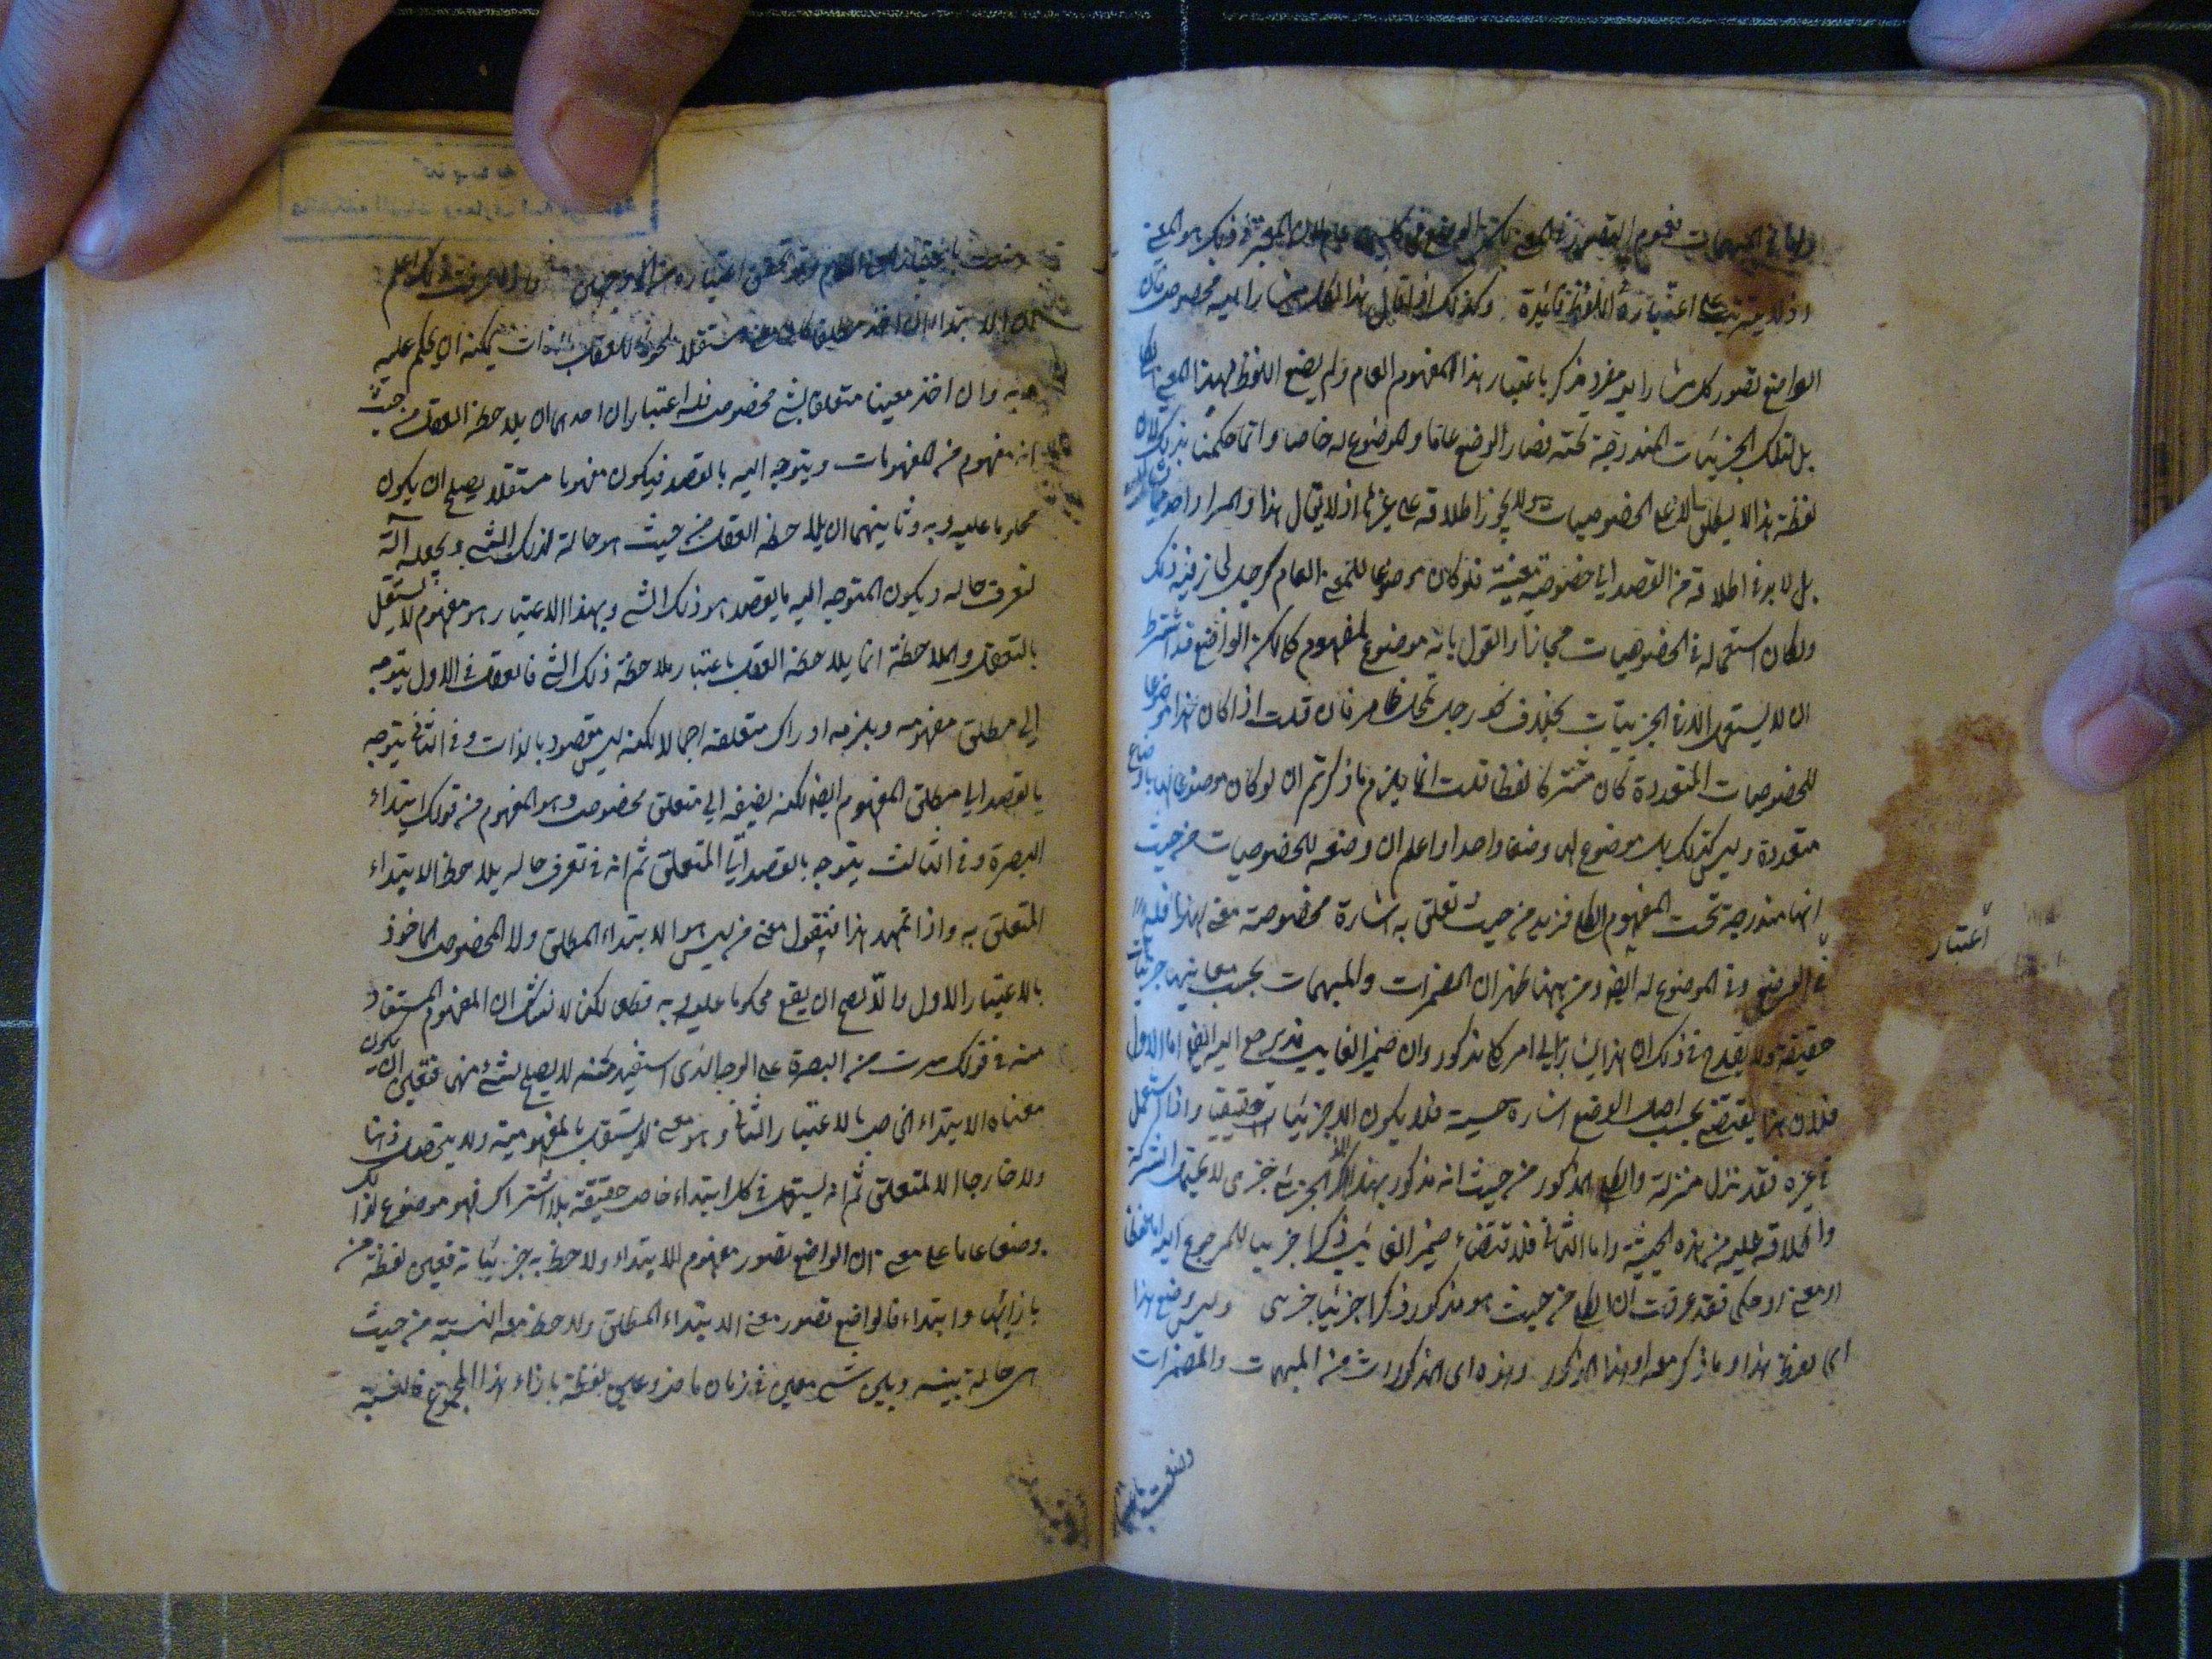 واما في المبهمات فعموم التصور في المعنى
اذ لا يترتب على اعتباره في اللفظ فائدة وكذلك اذا قال هذا لكل مشار اليه مخصوص فان
الواضع تصور كل مشار اليه مفرد مذكر باعتبار هذا المفهوم العام ولم يضع اللفظ لهذا المعنى الكلي
بل لتلك الجزئيات المندرجة تحته فصار الوضع عاما والموضوع له خاصا وانما حكمنا بذلك لان
لفظة هذا لا يطلق الا على الخصوصيات ولا يجوز اطلاقه على غيرها اذ لا يقال هذا والمراد احد مما
بل لا بد في اطلاقه من القصد الى خصوصية معينة فلو كان موضوعا للمعنى العام كرجل لجاز فيه ذلك
ولكان استعماله في الخصوصيات مجازا والقول بانه موضوع لمفهوم كلي لكن الواضع قد اشترط
ان لا يستعمل الا في الجزئيات بخلاف نحو رجل تحكم ظاهر فان قلت اذا كان هذا موضوعا
للخصوصيات المتعددة كان مشتركا لفظا قلت انما يلزم ما ذكرتم ان لو كان موضوعا لها باوضاع
متعددة وليس كذلك بل موضوع لها وضعا واحدا واعلم ان وضعه للخصوصيات من حيث
انها مندرجة تحت المفهوم الكلي فزيد من حيث تعلق به اشارة مخصوصة معنى لهذا فله
اعتبار
في الوضع وفي الموضوع له ايضا ومن ههنا ظهر ان المضمرات والمبهمات بحسب معانيها جزئيات
حقيقة ولا يقدح في ذلك ان هذا يشار به الى امر كلي مذكور وان ضمير الغائب قد يرجع اليه ايضا اما الاول
فلان هذا يقتضي بحسب اصل الوضع اشارة حسية فلا يكون الا جزئيا حقيقيا واذا استعمل
في غيره فقد نزل منزلته والكلي المذكور من حيث انه مذكور بهذا الذكر الجزئي جزئي لا يحتمل الشركة
واطلاقه عليه من هذه الحيثية واما الثاني فلاقتضاء ضمير الغائب ذكرا جزئيا للمرجوع اليه اما لفظا
او معنى او حكما فقد عرفت ان الكلي من حيث هو مذكور ذكرا جزئيا جزئي وليس وضع هذا
اي لفظة هذا وما ذكر معه او هذا المذكور وهذه اى المذكورات من المبهمات والمضمرات
وضعت باعتبار
وضعت باعتبار المعنى العام اعتباره من الوجهين واذا عرفت ذلك اعلم
ان الابتداء ان اخذ مطلقا كان معنى مستقلا ملحوظا للعقل بالذات يمكنه ان يحكم عليه
وبه وان اخذ معينا متعلقا بشئ مخصوص فله اعتباران احدهما ان يلاحظه العقل من حيث
انه مفهوم من المفهومات ويتوجه اليه بالقصد فيكون مفهوما مستقلا يصلح ان يكون
محكوما عليه وبه وثانيهما ان يلاحظه العقل من حيث هو حالة لذلك الشئ ويجعله آلة
لتعرف حاله ويكون المتوجه اليه بالقصد هو ذلك الشئ وبهذا الاعتبار هو مفهوم لا يستقل
بالتعقل والملاحظة انما يلاحظه العقل باعتبار ملاحظة ذلك الشئ فالعقل في الاول يتوجه
الى مطلق مفهومه ويلزمه ادراك متعلقه اجمالا لكنه ليس مقصودا بالذات وفي الثاني يتوجه
بالقصد الى مطلق المفهوم ايضا لكنه يضيفه الى متعلق مخصوص وهو المفهوم من قولك ابتداء
البصرة وفي الثالث يتوجه بالقصد الى المتعلق ثم انه في تعرف حاله يلاحظ الابتداء
المتعلق به واذا تمهد هذا فنقول معنى من ليس هو الابتداء المطلق ولا المخصوص الماخوذ
بالاعتبار الاول والا لصلح ان يقع محكوما عليه وبه قطعا لكن لا نشك ان المفهوم المستفاد
منه في قولك سرت من البصرة على الوجه الذى استفيد منه لا يصلح لشئ منهما فتعين ان يكون
معناه الابتداء الخاص بالاعتبار الثاني وهو معنى لا يستقل بالمفهومية ولا يتحصل ذهنا
ولا خارجا الا لمتعلق ثم انه يستعمل في كل ابتداء خاص حقيقة بلا اشتراك فهو موضوع لذلك
وضعا عاما على معنى ان الواضع تصور مفهوم الابتداء ولاحظ به جزئياته فعين لفظة من
بازائها وابتداء فالواضع تصور معنى الابتداء المطلق ولاحظ معه النسبة من حيث
هي حالة بينه وبين شئ معين في زمان ماض وعين لفظة بازاء هذا المجموع فالنسبة